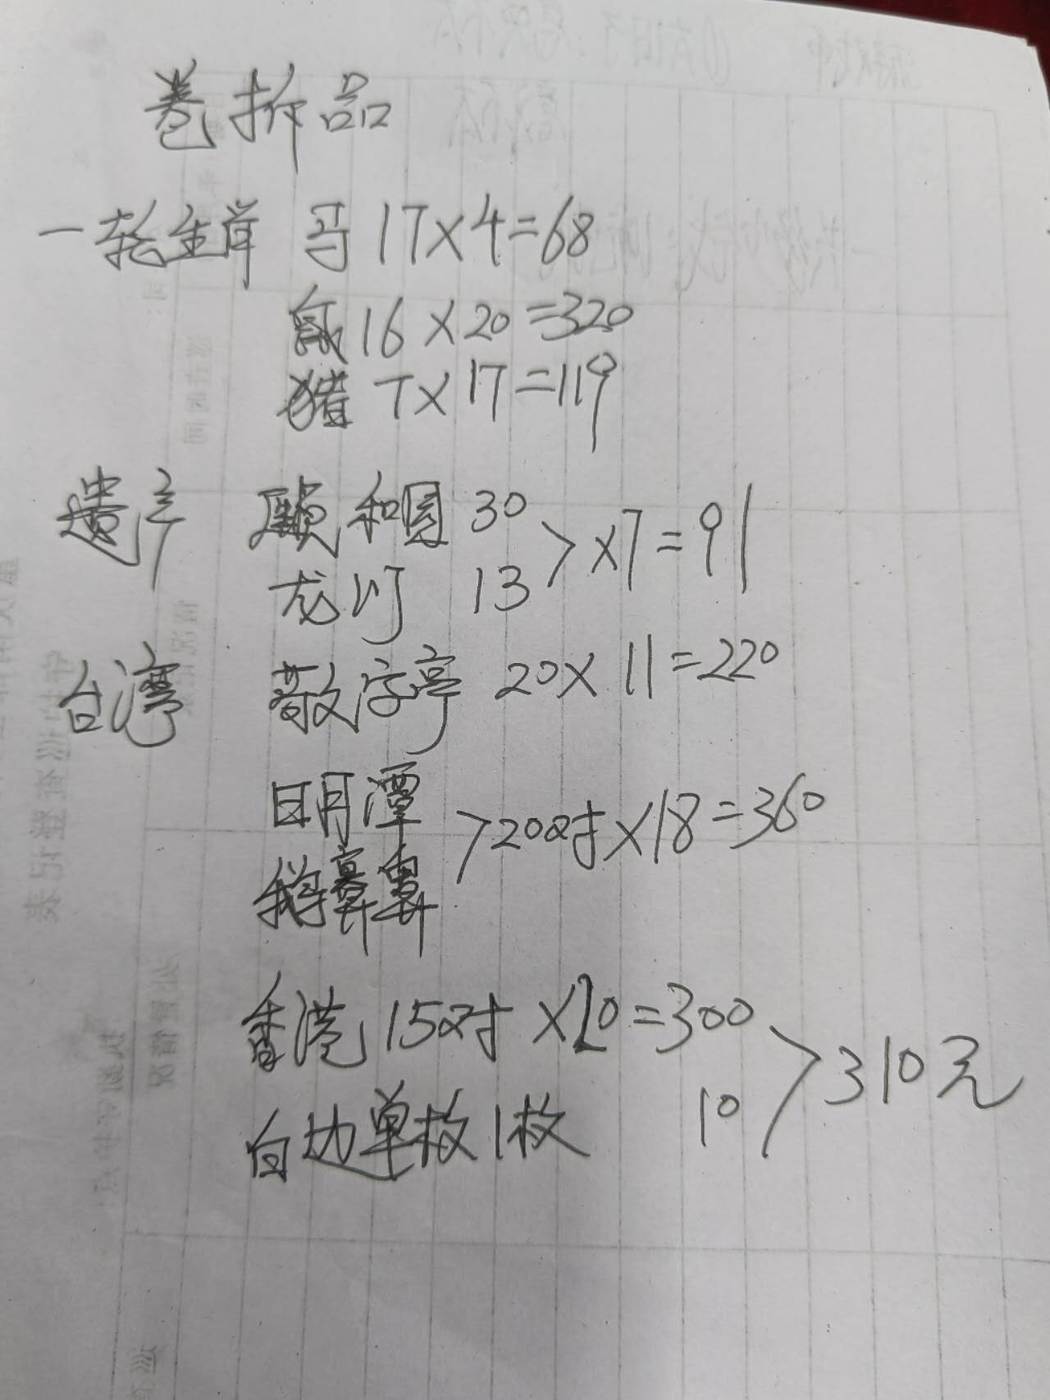 卷拆品
一轮生肖 马 17×4=68
鼠 16×20=320
猪 7×17=119
遗产 颐和园 30
龙门 13 >×7=91
台湾 敬字亭 20×11=220
日月潭
鹅銮鼻 >20对×18=360
香港 15对×20=300
白边单枚1枚 10 >310元